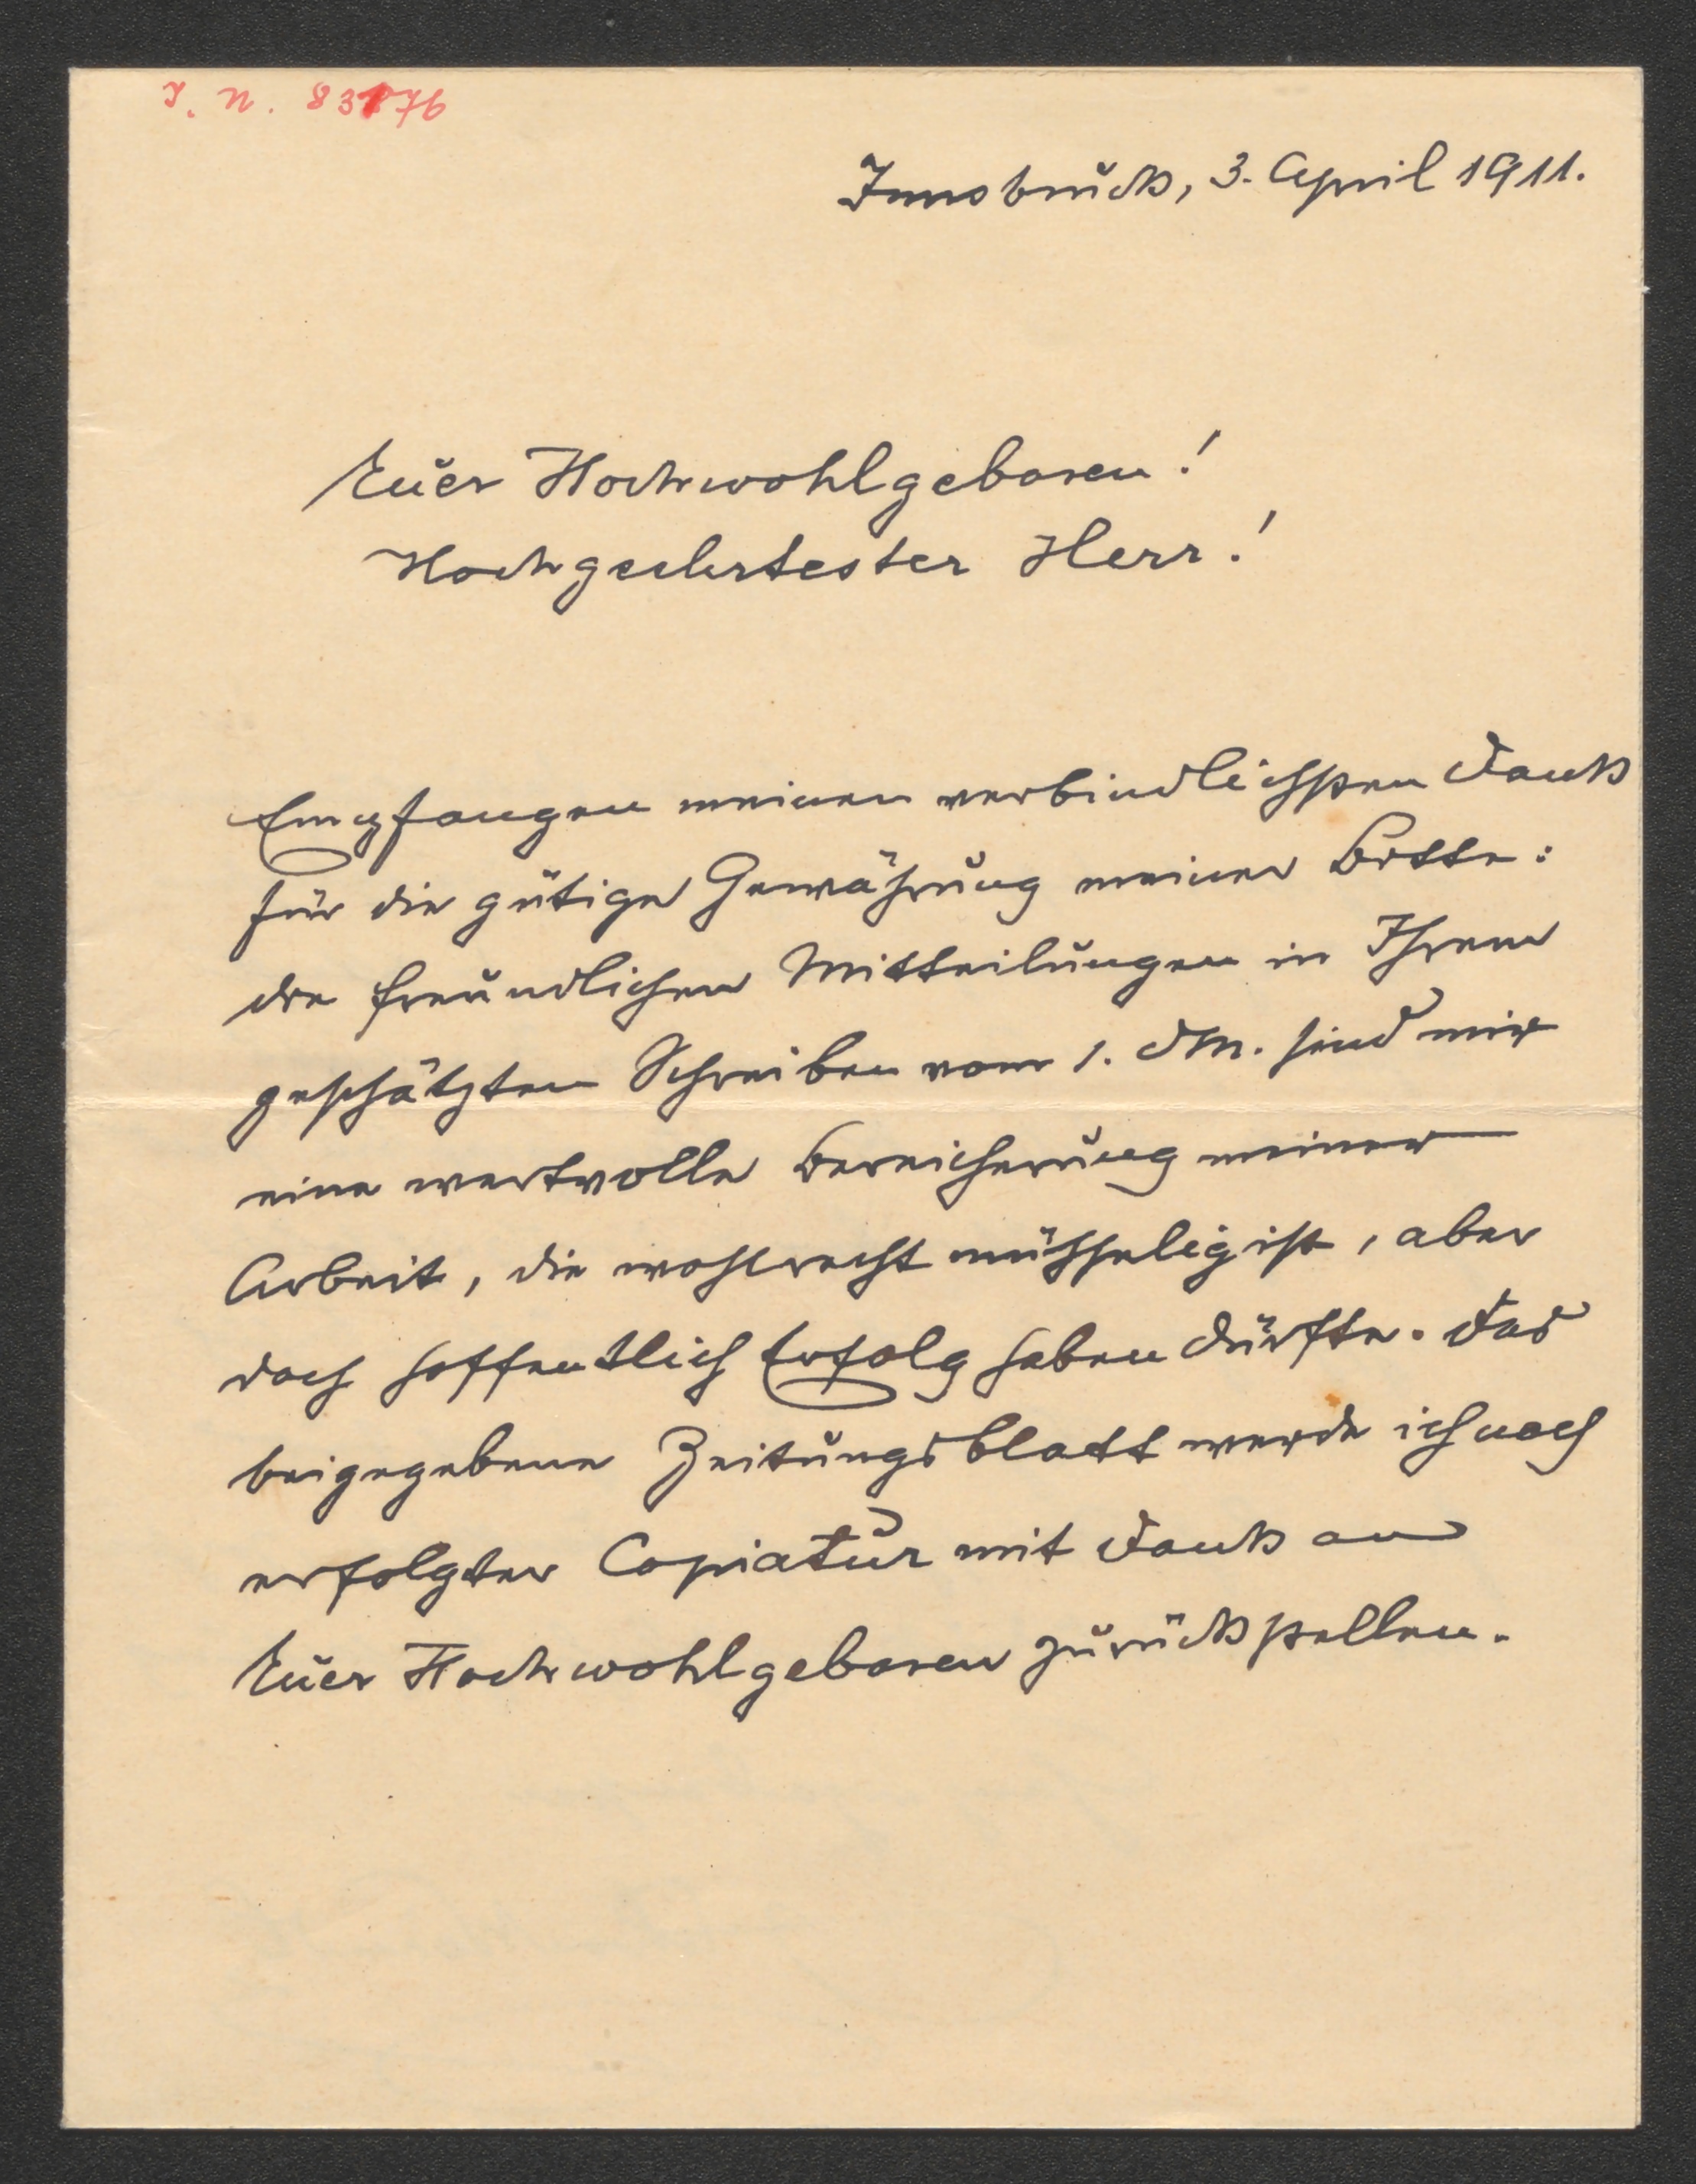 I. N. 83876
Innsbruck, 3. April 1911.
Euer Hochwohlgeboren!
Hochgeehrtester Herr!
Empfangen meinen verbindlichsten Dank
für die gütige Gewährung meiner Bitte:
die freundlichen Mitteilungen in Ihrem
geschätzten Schreiben vom 1. dM. sind mir
eine wertvolle Bereicherung meiner
Arbeit, die wohl recht mühselig ist, aber
doch hoffentlich Erfolg haben dürfte. Das
beigegebene Zeitungsblatt werde ich nach
erfolgter Copiatur mit Dank an
Euer Hochwohlgeboren zurückstellen.